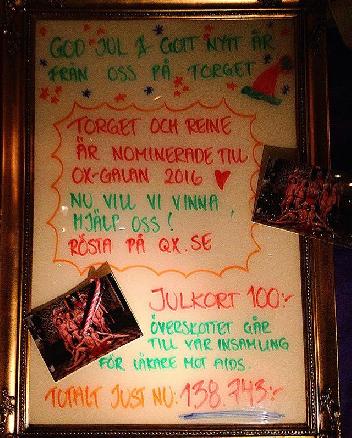 GOD JUL & GOTT NYTT ÅR
FRÅN OSS PÅ TORGET
TORGET OCH REINE
ÄR NOMINERADE TILL
QX-GALAN 2016
NU VILL VI VINNA,
HJÄLP OSS!
RÖSTA PÅ QX.SE
JULKORT 100:-
ÖVERSKOTTET GÅR
TILL VÅR INSAMLING
FÖR LÄKARE MOT AIDS.
TOTALT JUST NU: 138.743:-